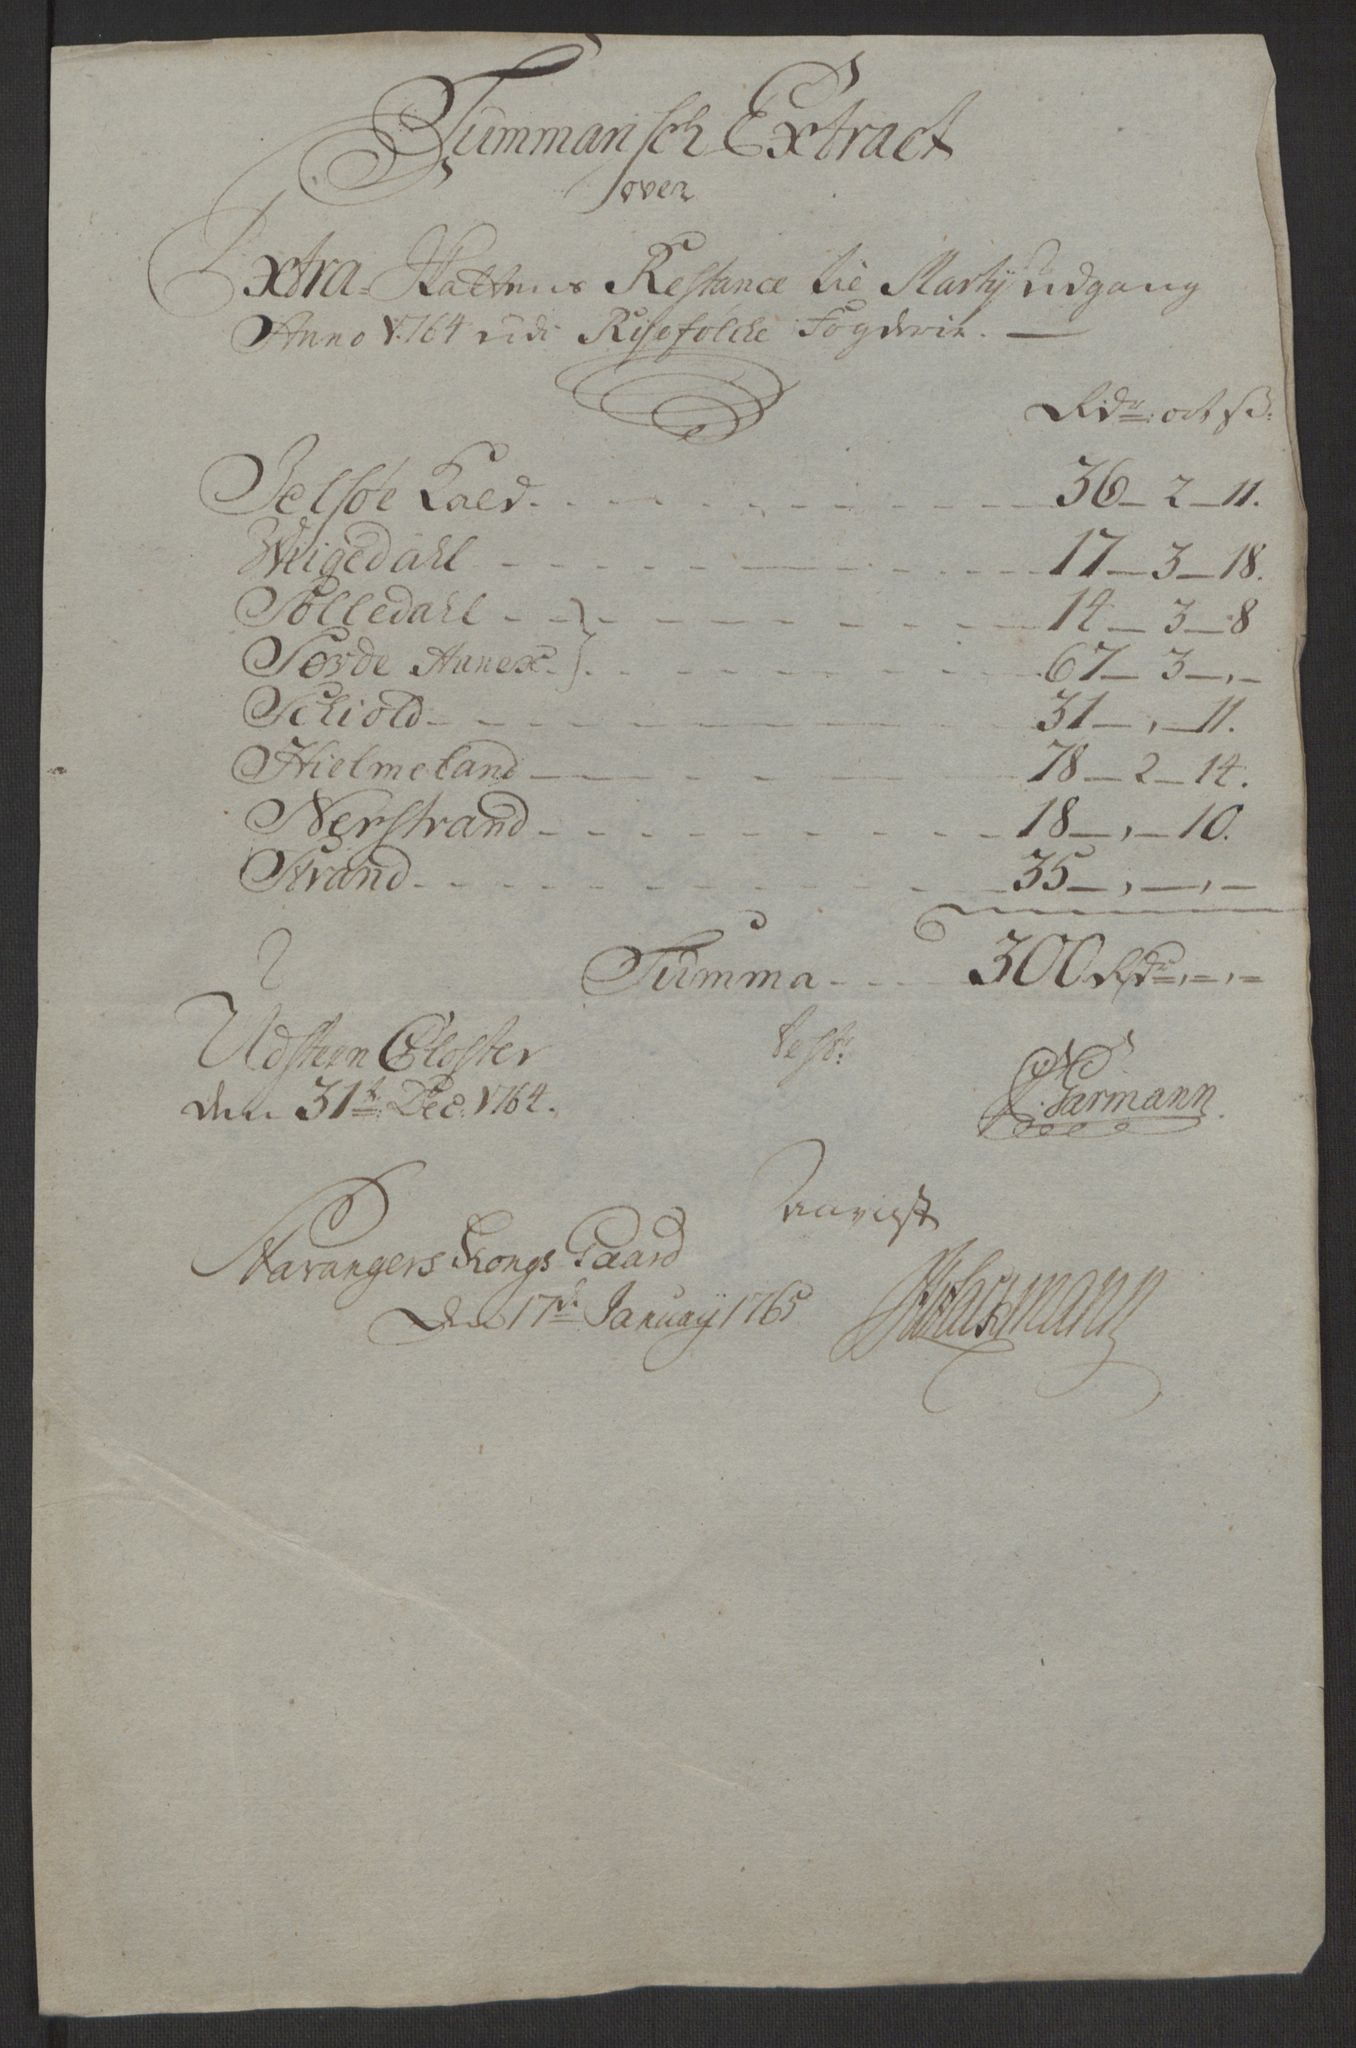 Summarisch Extract
over
Extra-Skattens Restance til Marty udgang
Anno 1764 udi Ryefylcke Fogderie.
Rdr: ort ß:
Jelsøe Kald 36 - 2 - 11.
Wigedahl 17 - 3 - 18.
Sølledahl 14 - 3 - 8
Sovde Annex 67 - 3 - , -
Schiold 31 - , - 11.
Hielmeland 78 - 2 - 14.
Nerstrand 18 - , - 10.
Strand 35 - , - , -
Summa 300 Rdr , - , -
Udsteen Closter
den 31te Dec. 1764. test: Garmann
Stavangers Kongs Gaard
den 17de January 1765